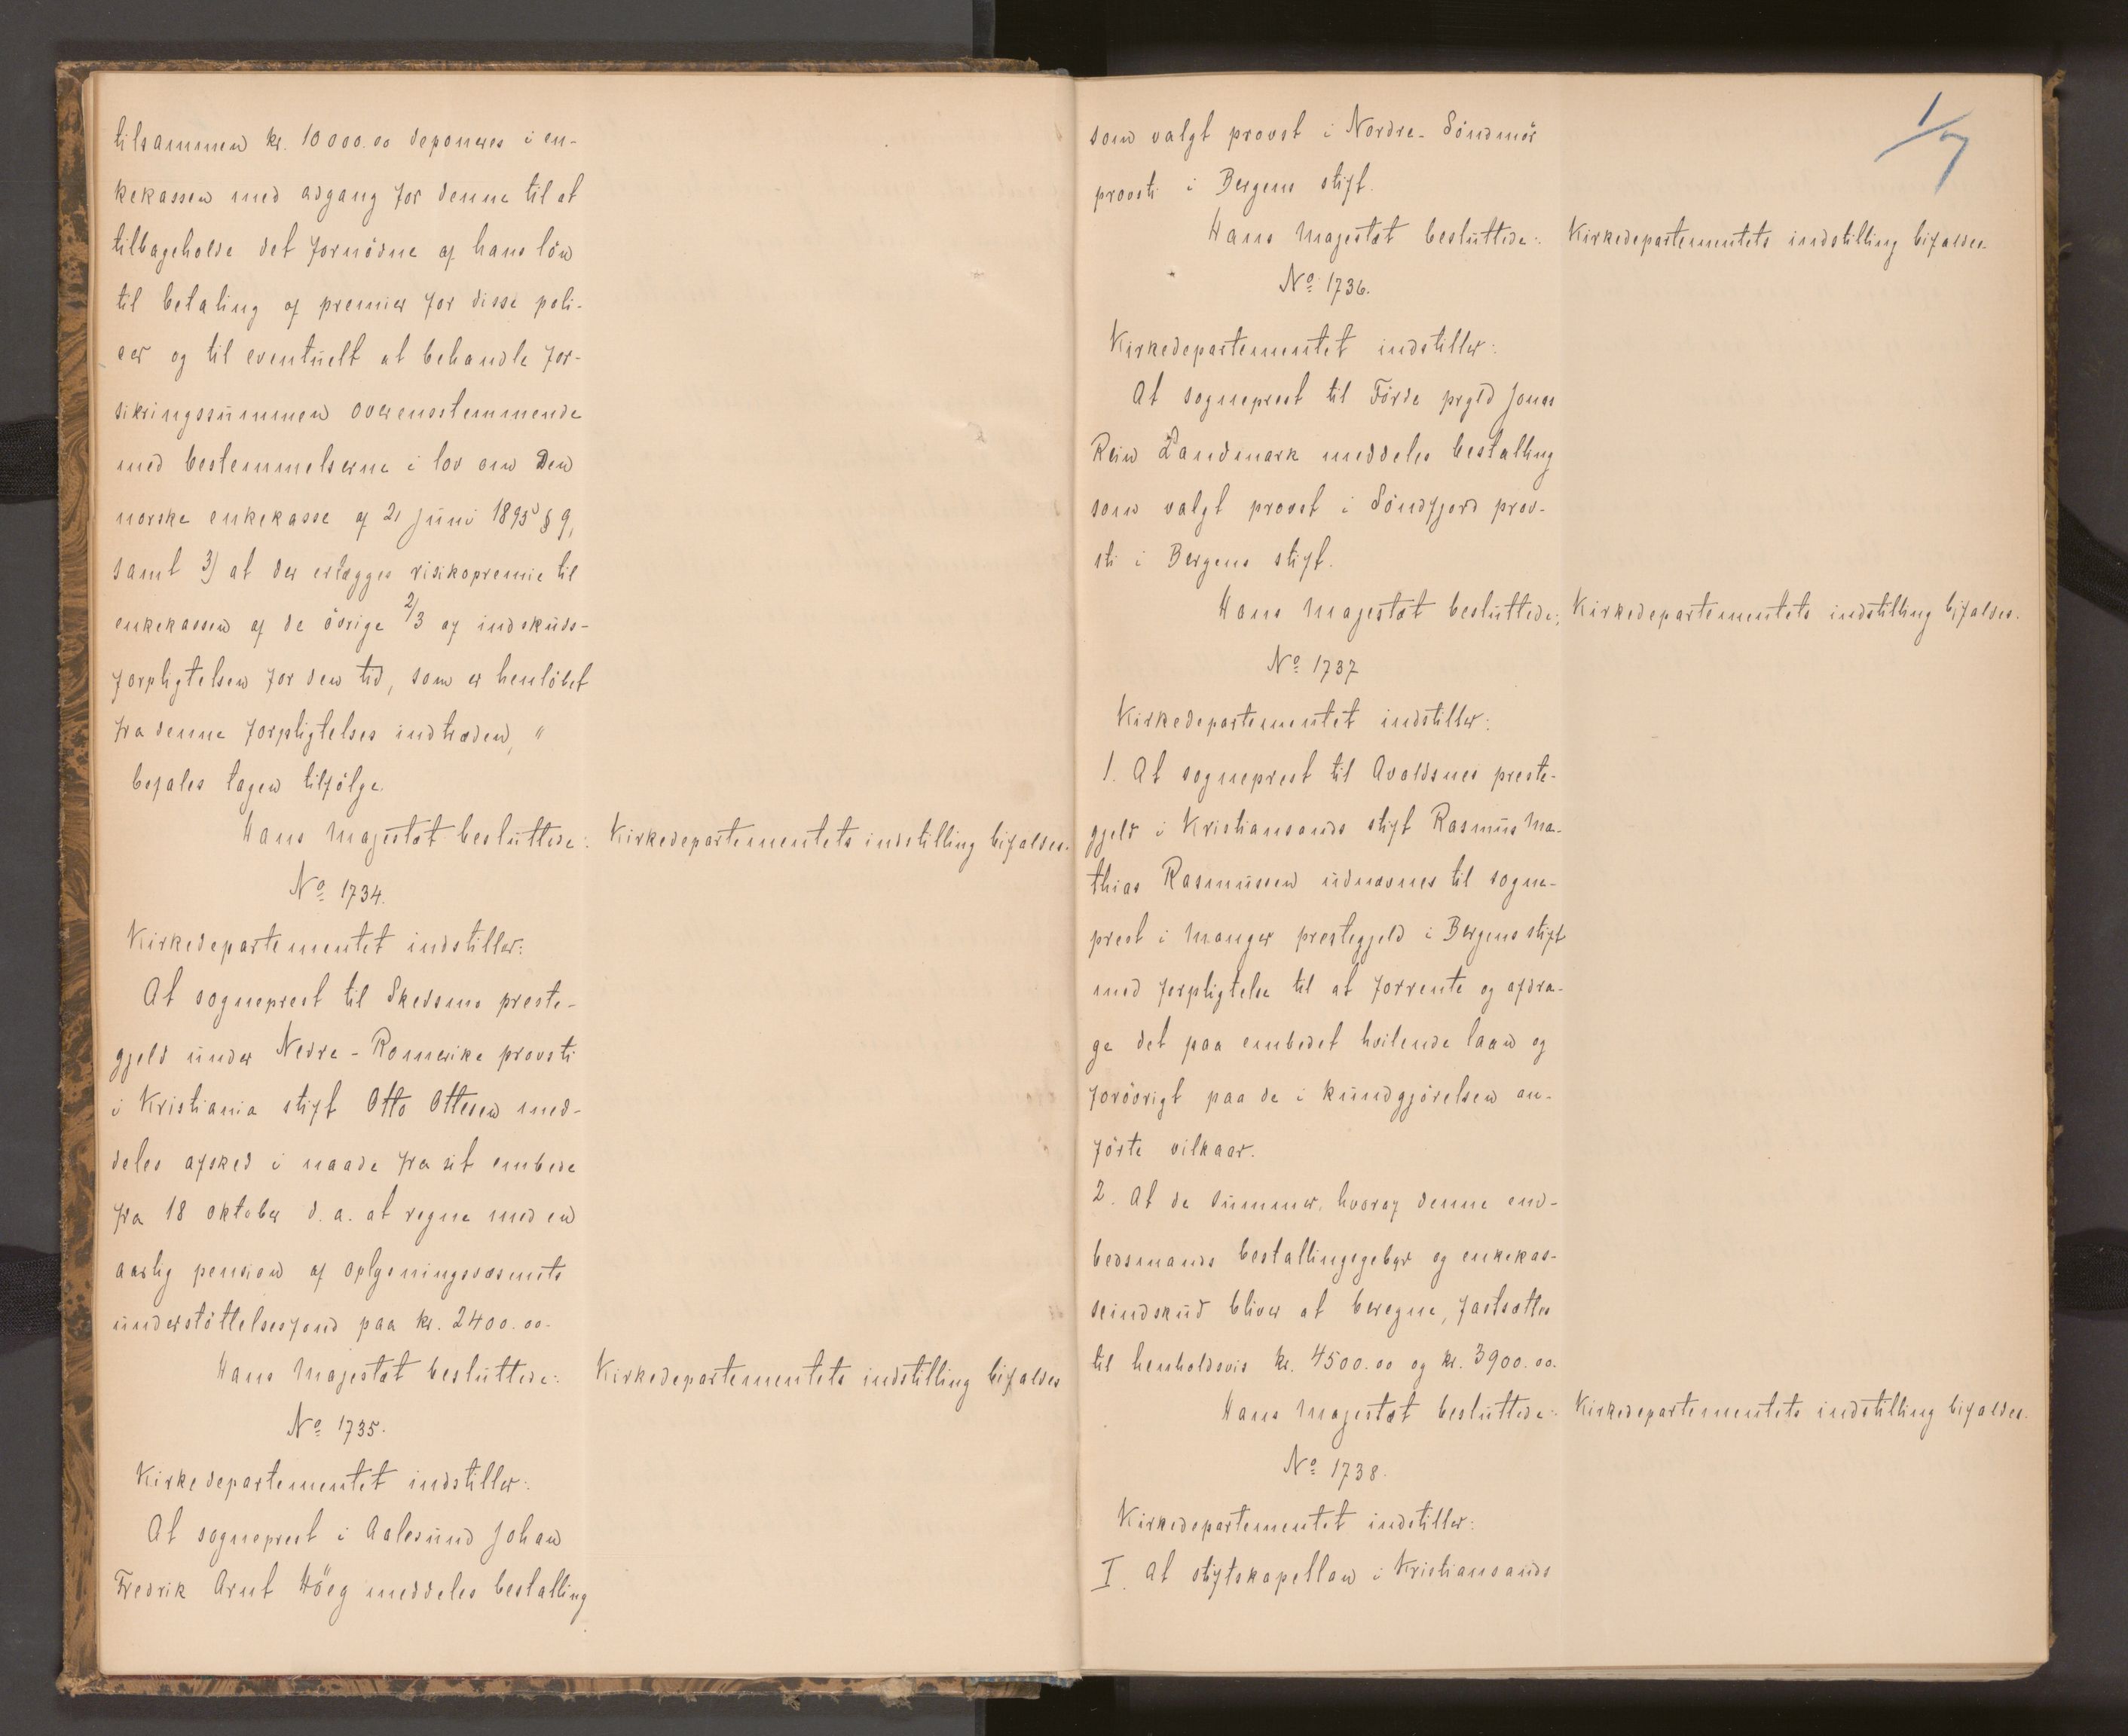 tilsammen kr. 10000.00 deponeres i en-
kekassen med adgang for denne til at
tilbageholde det fornödne af hans lön
til betaling af premier for disse poli-
cer og til eventuelt at behandle for-
sikringssummen overensstemmende
med bestemmelserne i lov om Den
norske enkekasse af 21 juni 1895 § 9,
samt 3) at der erlægges risikopremie til
enkekassen af de övrige 2/3 af indskuds-
forpligtelsen for den tid, som er henlöbet
fra denne forpligtelses indtræden, "
befales tagen tilfölge.
Hans Majestæt besluttede: Kirkedepartementets indstilling bifaldes.
No 1734.
Kirkedepartementet indstiller:
At sogneprest til Skedsmo preste-
gjeld under Nedre-Romerike provsti
i Kristiania stift Otto Ottesen med-
deles afsked i naade fra sit embede
fra 18 oktober d. a. at regne med en
aarlig pension af oplysningsvæsenets
understöttelsesfond paa kr. 2400.00.
Hans Majestæt besluttede: Kirkedepartementets indstilling bifaldes
No 1735.
Kirkedepartementet indstiller:
At sogneprest i Aalesund Johan
Fredrik Arnt Höeg meddeles bestalling
1/7
som valgt provst i Nordre-Söndmör
provsti i Bergens stift.
Hans Majestæt besluttede: Kirkedepartementets indstilling bifaldes.
No 1736.
Kirkedepartementet indstiller:
At sogneprest til Förde prgld Jonas
Rein Landmark meddeles bestalling
som valgt provst i Söndfjord prov-
sti i Bergens stift.
Hans Majestæt besluttede: Kirkedepartementets indstilling bifaldes.
No 1737
Kirkedepartementet indstiller:
1. At sogneprest til Avaldsnes preste-
gjeld i Kristiansands stift Rasmus Ma-
thias Rasmussen udnævnes til sogne-
prest i Manger prestegjeld i Bergens stift
med forpligtelse til at forrente og afdra-
ge det paa embedet hvilende laan og
forövrigt paa de i kundgjörelsen an-
förte vilkaar.
2. At de summer, hvoraf denne em-
bedsmands bestallingsgebyr og enkekas-
seindskud bliver at beregne, fastsættes
til henholdsvis kr. 4500.00 og kr. 3900.00.
Hans Majestæt besluttede: Kirkedepartementets indstilling bifaldes.
No 1738.
Kirkedepartementet indstiller:
I. At stiftskapellan i Kristiansands